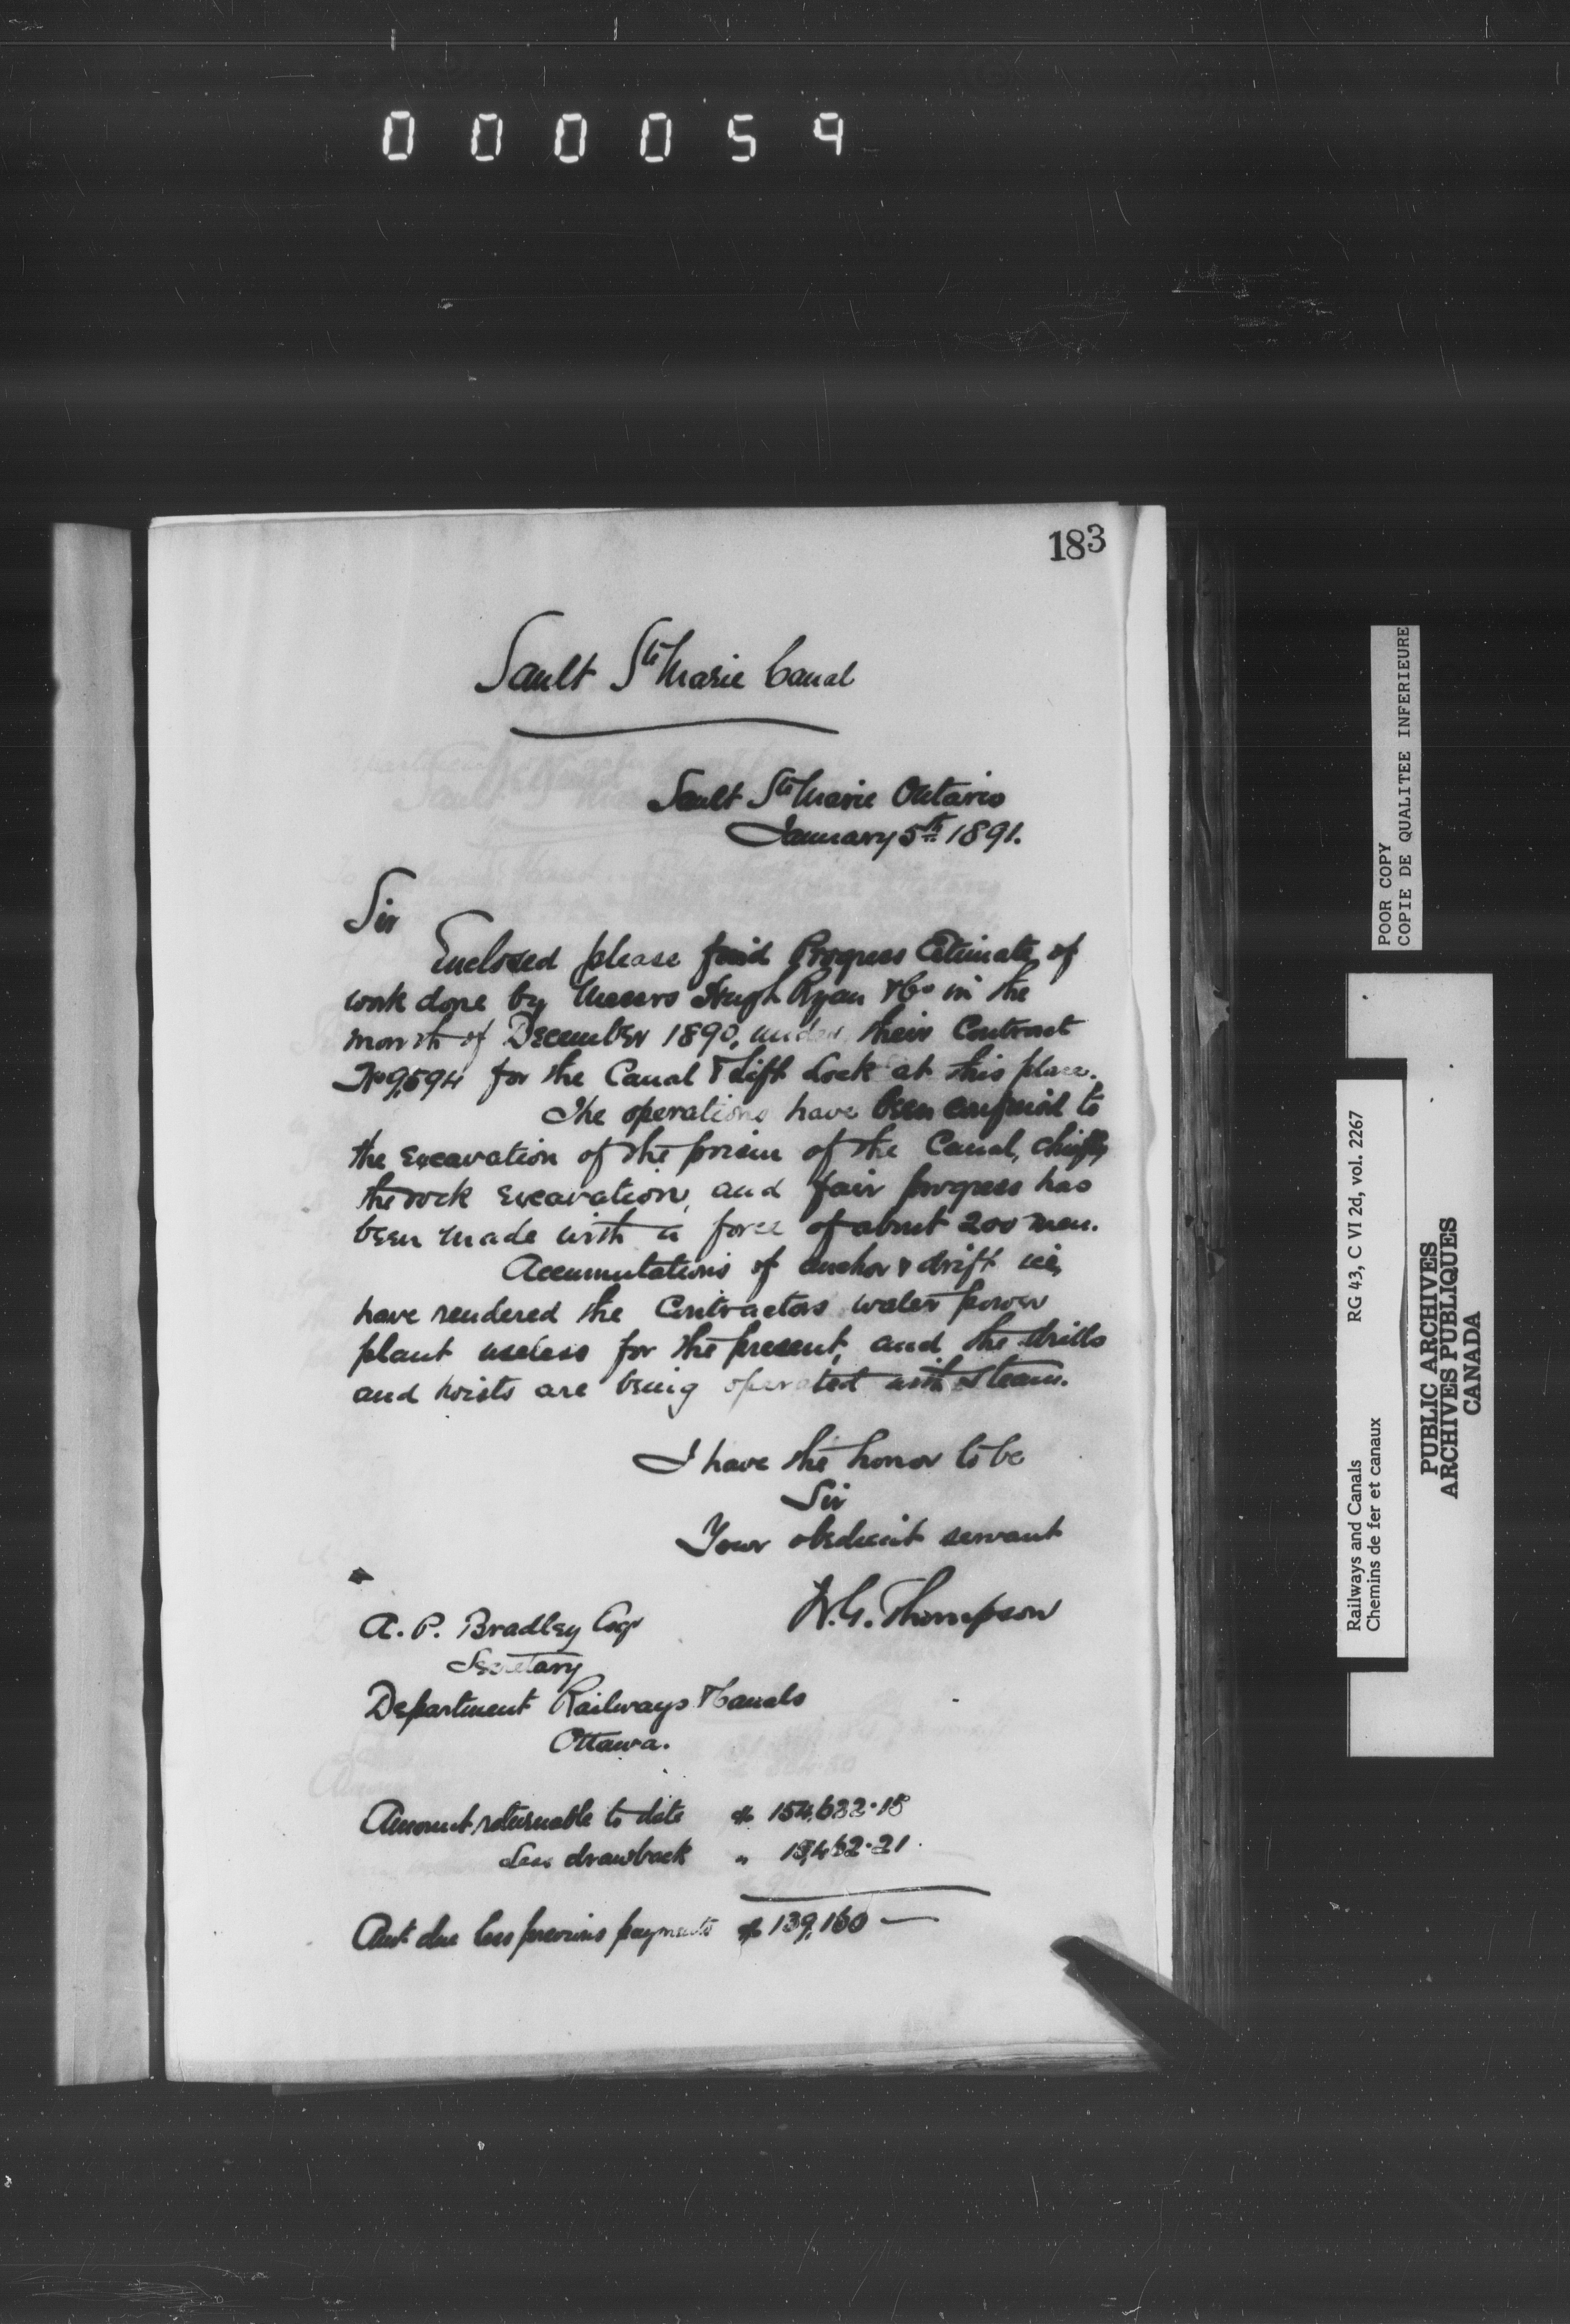 000059
183
Sault Ste Marie Canal
Sault Ste Marie Ontario
January 5th 1891.
Sir
Enclosed please find Progress Estimate of
work done by Messrs Hugh Ryan & Co in the
month of December 1890, under their Contract
No 9,594 for the Canal & Lift Lock at this place.
The operations have been confined to
the excavation of the prism of the Canal, chiefly
the rock excavation, and fair progress has
been made with a force of about 200 men.
Accumulations of anchor & drift ice,
have rendered the Contractors water power
plant useless for the present, and the drills
and hoists are being operated with steam.
I have the honor to be
Sir
Your obedient servant
W.G. Thompson
A. P. Bradley Esqr
Secretary
Department Railways & Canals
Ottawa.
Amount returnable to date $ 154,622.18
Less drawback " 15,462.21
Amt due less previous payments $ 139,160 —
POOR COPY
COPIE DE QUALITEE INFERIEURE
Railways and Canals RG 43, C VI 2d, vol. 2267
Chemins de fer et canaux
PUBLIC ARCHIVES
ARCHIVES PUBLIQUES
CANADA